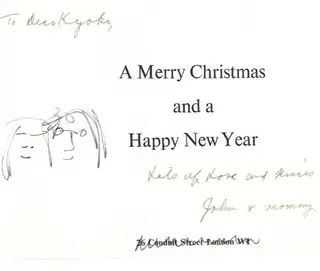 To Dear Kyoko,
A Merry Christmas
and a
Happy New Year
Lots of Love and kisses
John & mommy.
26 Conduit Street London W1